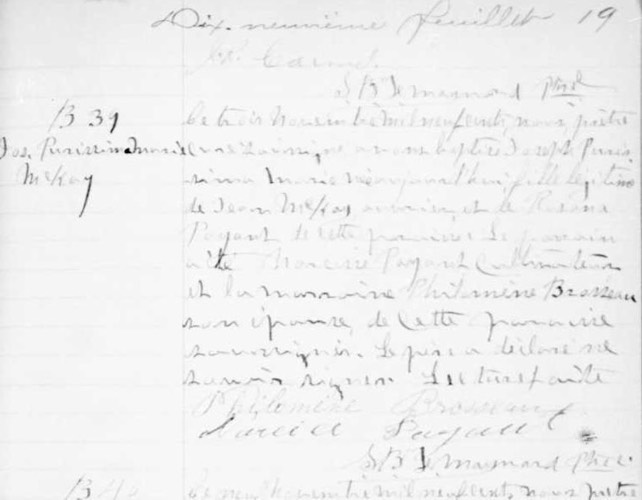 Dix-neuvième feuillet 19
J. B. Lemaynard Ptre
B 39
Jos. Purissima Marie
McKay
Le trois novembre mil neuf cent, nous, prêtre
curé soussigné avons baptisé Joseph Puris
sima Marie né aujourd'hui, fille légitime
de Jean McKay ouvrier, et de Rosana
Payant de cette paroisse. Le parrain
a été Narcisse Payant cultivateur
et la marraine Philomène Brosseau
son épouse, de cette paroisse
soussignés. Le père a déclaré ne
savoir signer. Lecture faite
Philomène Brosseau
Narcisse Payant
J B Lemaynard Ptre
B 40
Le neuf novembre mil neuf cent nous prêtre